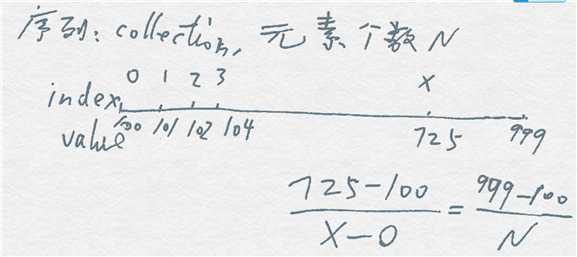 序列: collection, 元素个数 N
0 1 2 3 x
index
value 100 101 102 104 725 999
725-100 / x-0 = 999-100 / N